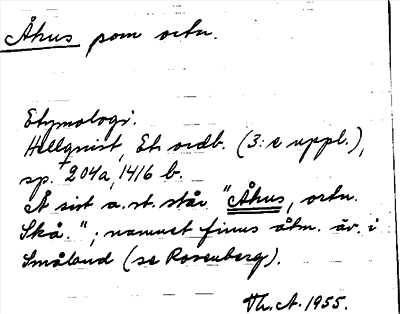 Åhus som ortn.
Etymologi.
Hellquist, Et. ordb. (3:e uppl.),
sp. 204a, 1416 b.
Å sist a. st. står "Åhus, ortn.
Skå."; namnet finns åtm. äv. i
Småland (se Rosenberg).
Th. A. 1955.